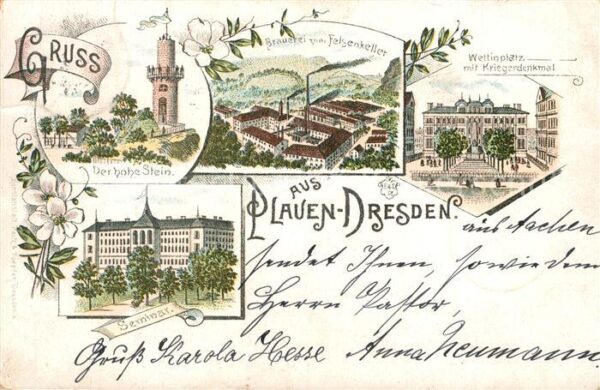 GRUSS
Brauerei zum Felsenkeller
Wettinplatz
mit Kriegerdenkmal
Der hohe Stein.
AUS
PLAUEN-DRESDEN.
Seminar.
aus Aachen
sendet Ihnen, sowie dem
Herrn Pastor,
Gruß Karola Hesse Anna Neumann